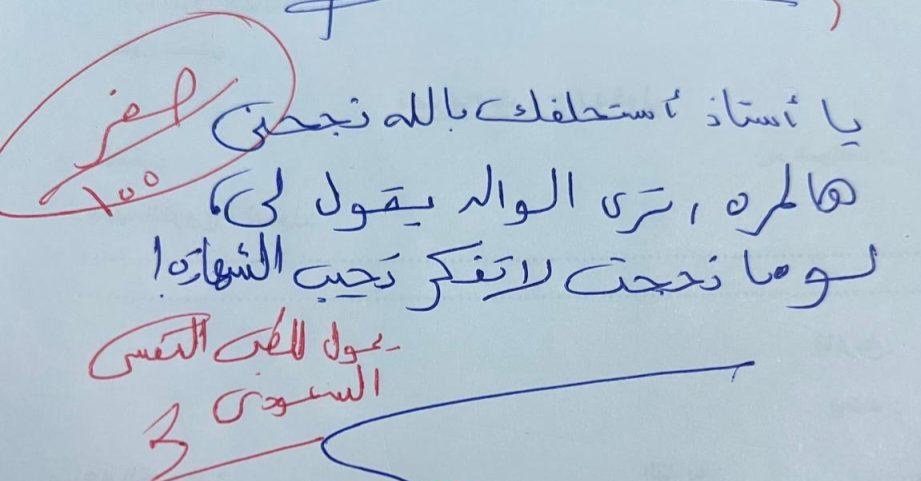 صفر
١٠٠
يا أستاذ أستحلفك بالله نجحني
هالمره ، ترى الوالد يقول لي،
لو ما نجحت لا تفكر تجيب الشهادة!
يحول للطب النفسي
السعودي